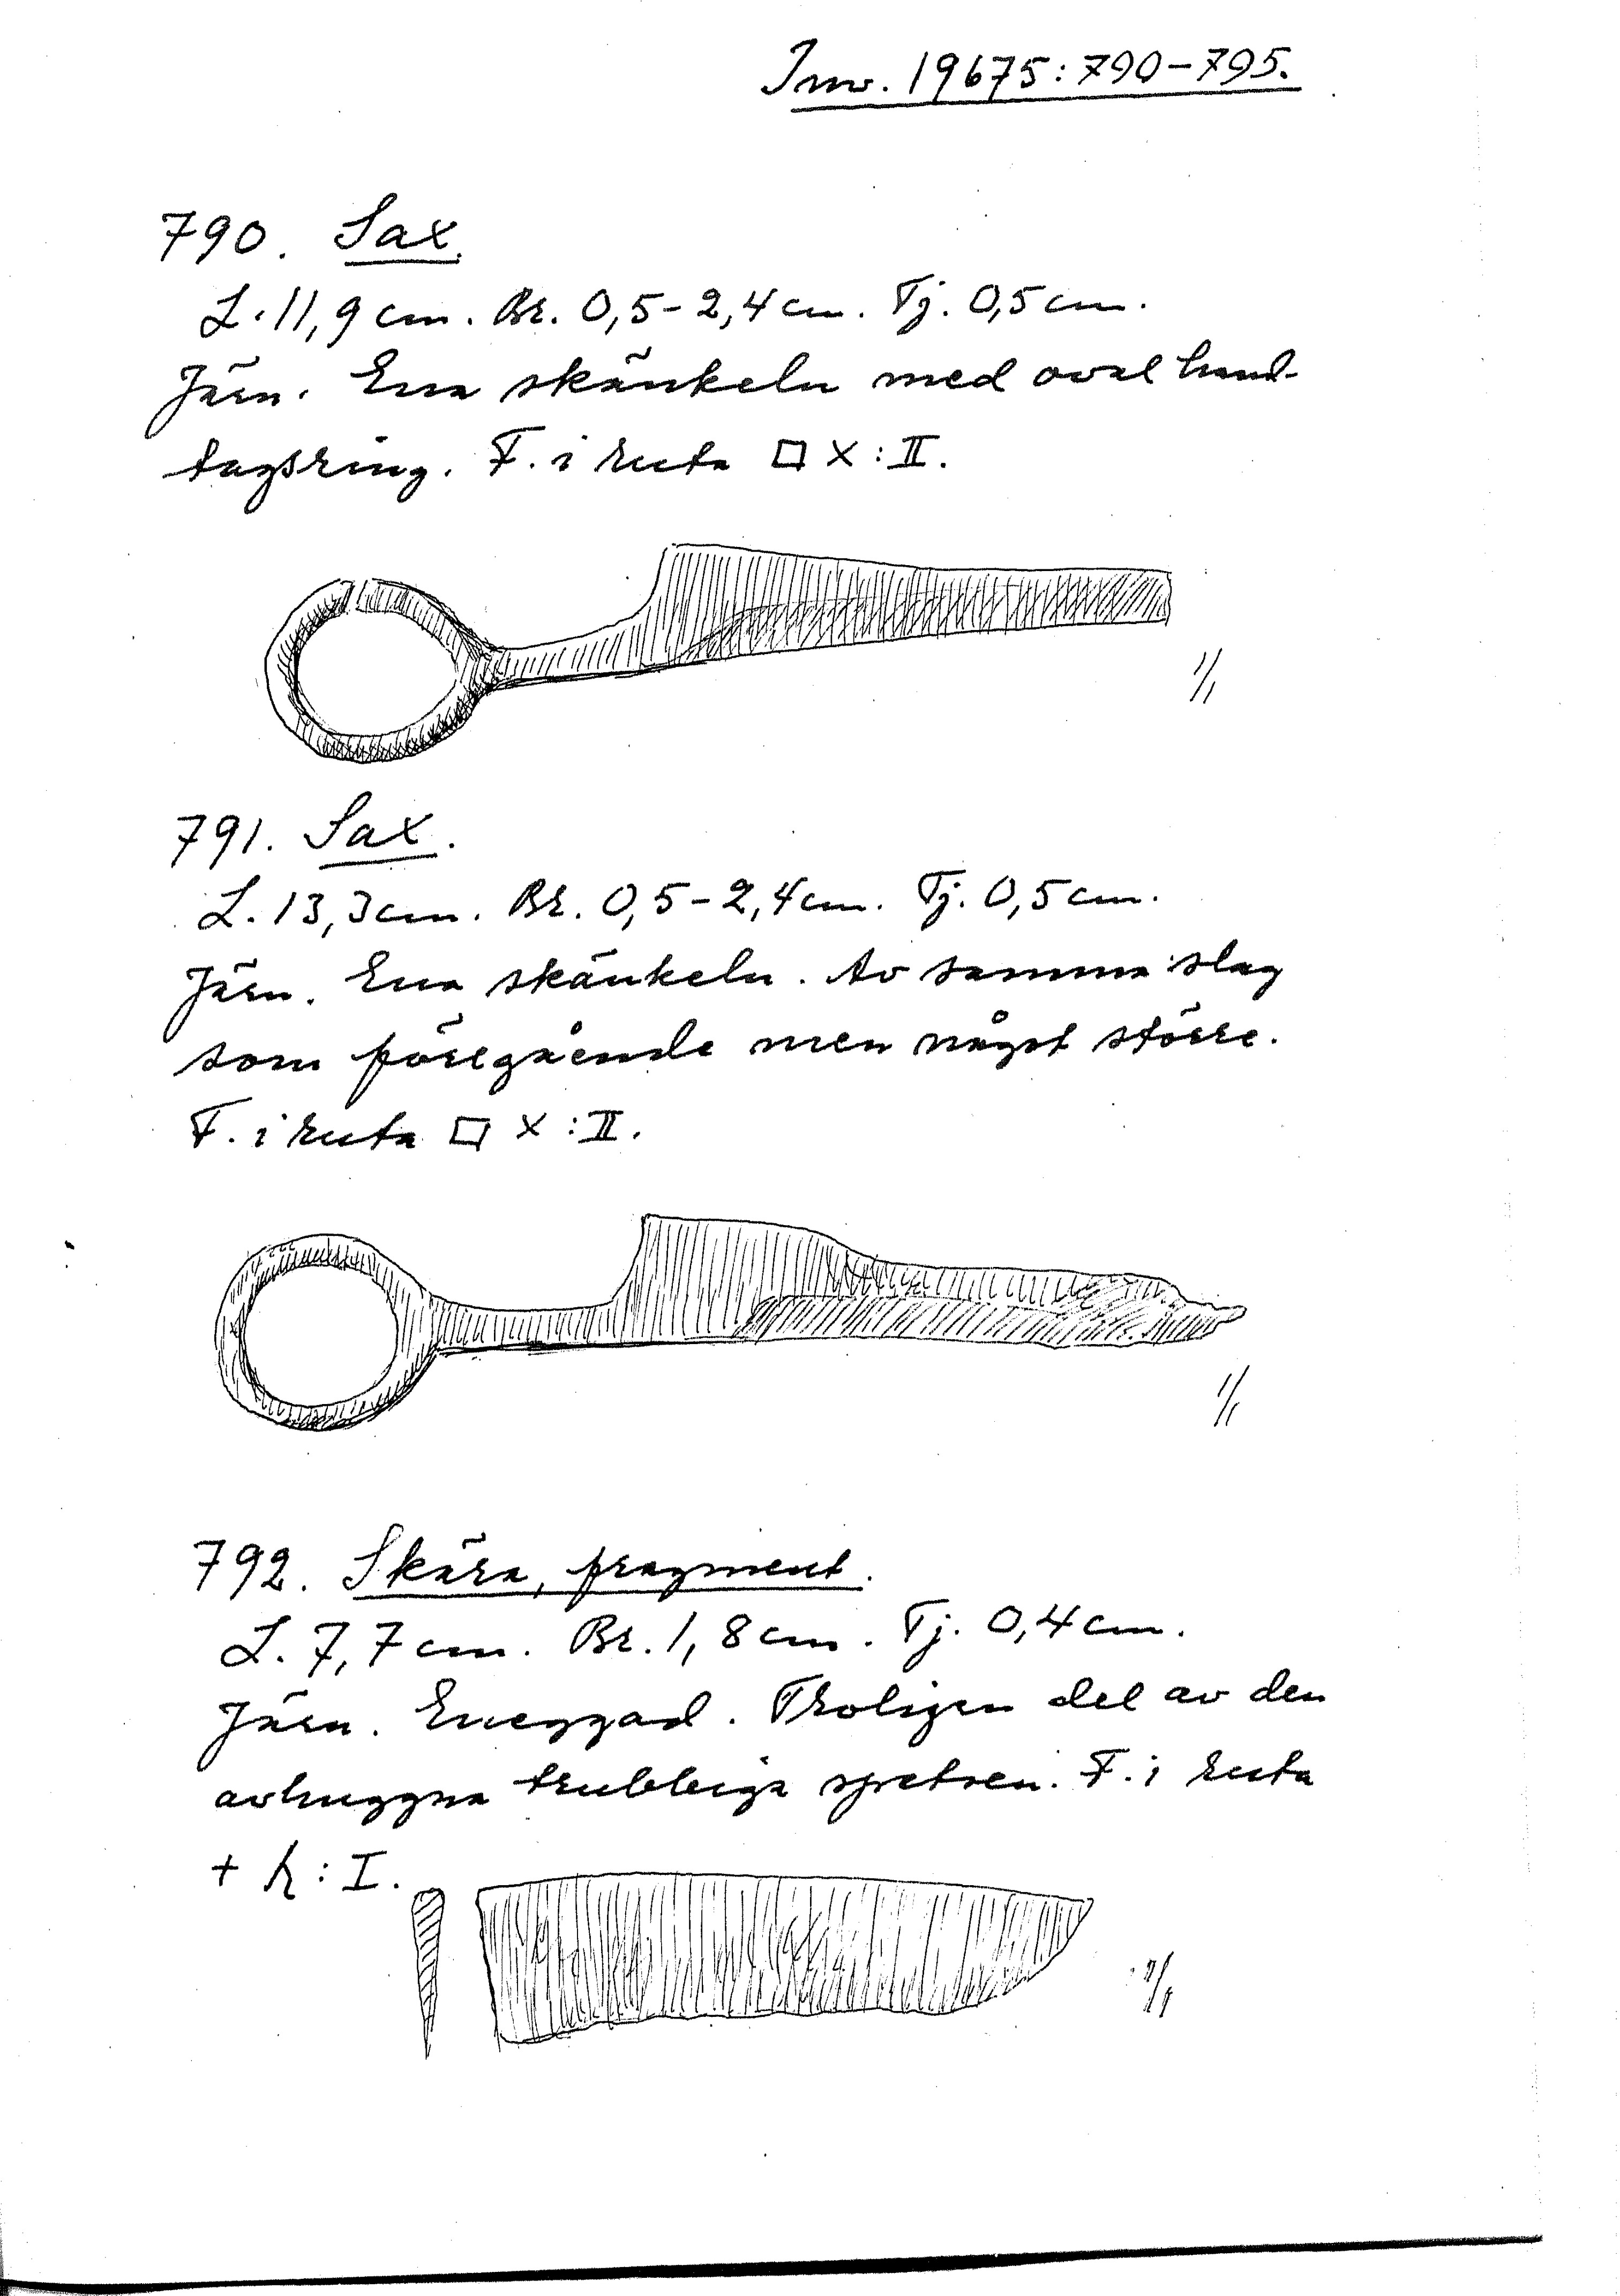 Inv. 19675:790-795.
790. Sax.
L. 11,9 cm. Br. 0,5-2,4 cm. Tj. 0,5 cm.
Järn. Ena skänkeln med oval hand-
tagsring. F. i ruta □ X:II.
1/1
791. Sax.
L. 13,3 cm. Br. 0,5-2,4 cm. Tj. 0,5 cm.
Järn. Ena skänkeln. Av samma slag
som föregående men något större.
F. i ruta □ X:II.
1/1
792. Skära, fragment.
L. 7,7 cm. Br. 1,8 cm. Tj. 0,4 cm.
Järn. Eneggad. Troligen del av den
avhuggna trubbiga spetsen. F. i ruta
+ h:I.
1/1